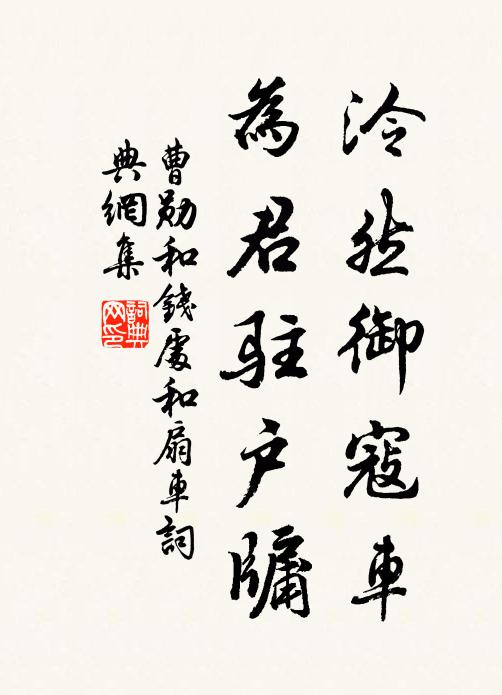 泠然御寇車
為君駐户牖
曹勛和錢處和扇車詞
典網集
詞典網印